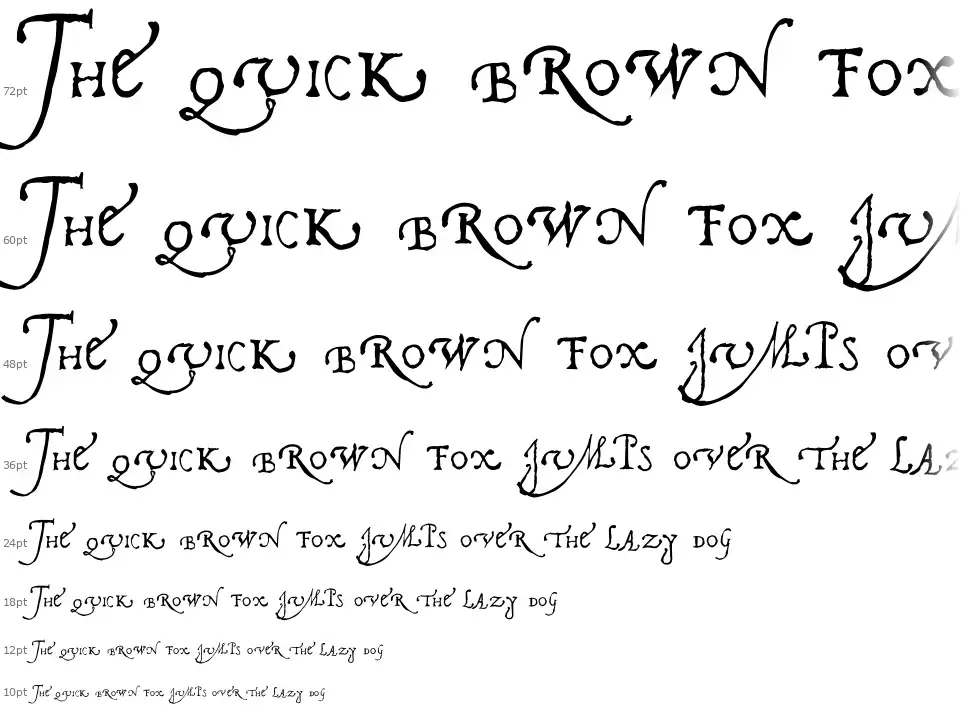 72pt The quick brown fox
60pt The quick brown fox ju
48pt The quick brown fox jumps ov
36pt The quick brown fox jumps over the laz
24pt The quick brown fox jumps over the lazy dog
18pt The quick brown fox jumps over the lazy dog
12pt The quick brown fox jumps over the lazy dog
10pt The quick brown fox jumps over the lazy dog